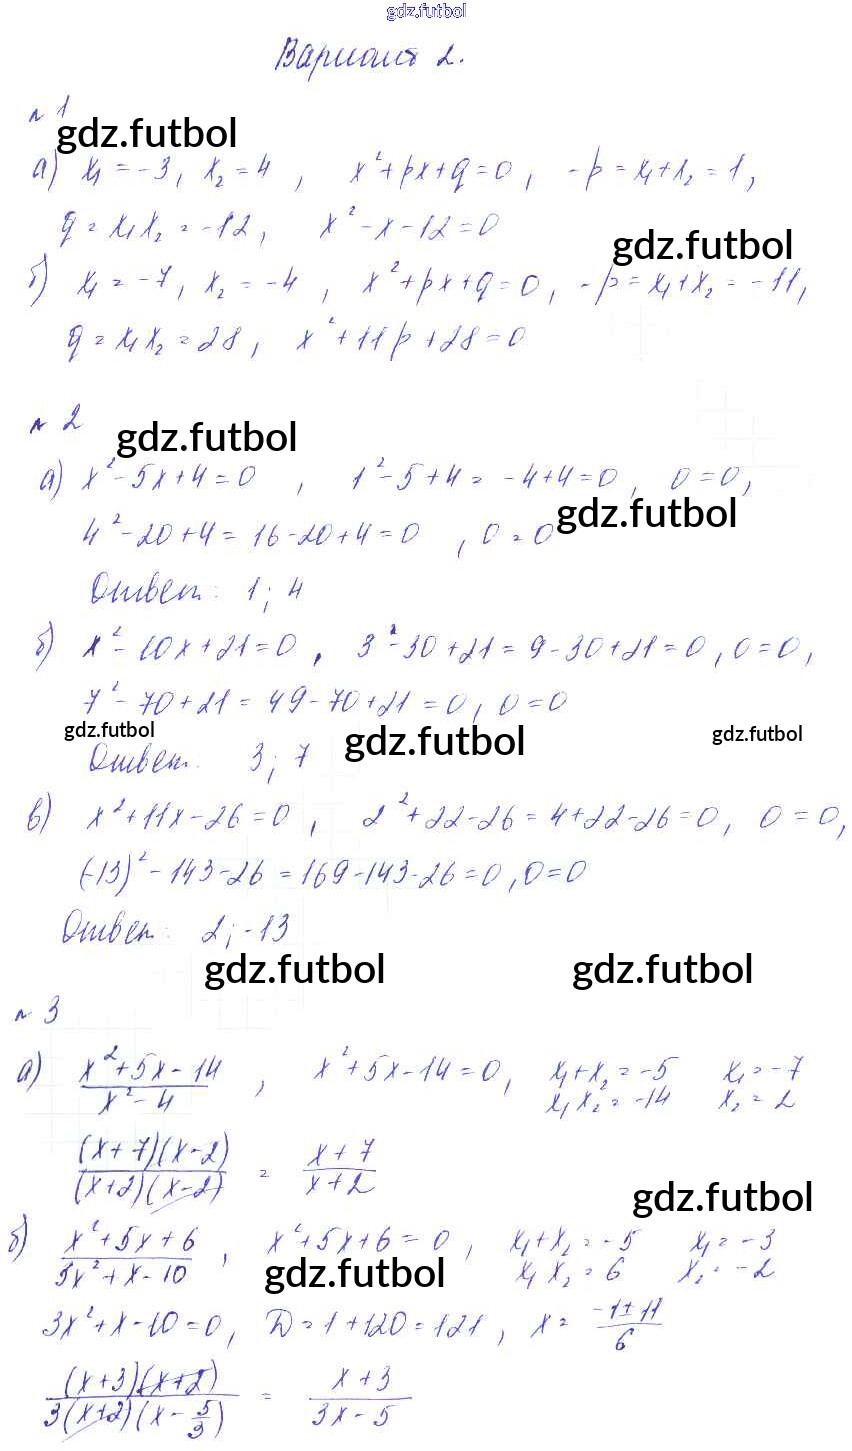 gdz.futbol
Вариант 2.
№ 1
gdz.futbol
а) x₁ = -3, x₂ = 4, x² + px + q = 0, -p = x₁ + x₂ = 1,
q = x₁x₂ = -12, x² - x - 12 = 0
gdz.futbol
б) x₁ = -7, x₂ = -4, x² + px + q = 0, -p = x₁ + x₂ = -11,
q = x₁x₂ = 28, x² + 11p + 28 = 0
№ 2
gdz.futbol
а) x² - 5x + 4 = 0, 1² - 5 + 4 = -4 + 4 = 0, 0 = 0,
gdz.futbol
4² - 20 + 4 = 16 - 20 + 4 = 0, 0 = 0
Ответ: 1; 4
б) x² - 10x + 21 = 0, 3² - 30 + 21 = 9 - 30 + 21 = 0, 0 = 0,
7² - 70 + 21 = 49 - 70 + 21 = 0, 0 = 0
gdz.futbol gdz.futbol gdz.futbol
Ответ: 3; 7
в) x² + 11x - 26 = 0, 2² + 22 - 26 = 4 + 22 - 26 = 0, 0 = 0,
(-13)² - 143 - 26 = 169 - 143 - 26 = 0, 0 = 0
Ответ: 2; -13
gdz.futbol gdz.futbol
№ 3
а) (x² + 5x - 14)/(x² - 4), x² + 5x - 14 = 0, x₁ + x₂ = -5 x₁ = -7
x₁x₂ = -14 x₂ = 2
((x + 7)(x - 2))/((x + 2)(x - 2)) = (x + 7)/(x + 2)
gdz.futbol
б) (x² + 5x + 6)/(3x² + x - 10), x² + 5x + 6 = 0, x₁ + x₂ = -5 x₁ = -3
gdz.futbol
x₁x₂ = 6 x₂ = -2
3x² + x - 10 = 0, D = 1 + 120 = 121, x = (-1 ± 11)/6
((x + 3)(x + 2))/(3(x + 2)(x - 5/3)) = (x + 3)/(3x - 5)